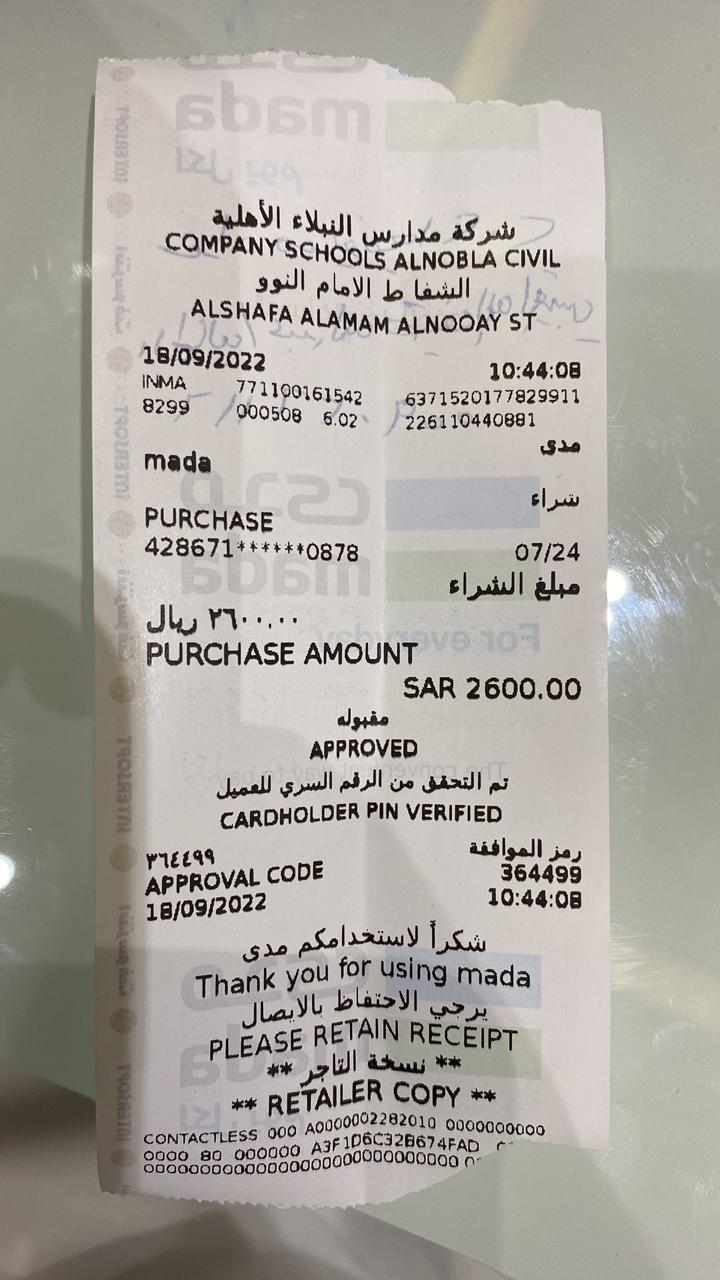 شركة مدارس النبلاء الأهلية
COMPANY SCHOOLS ALNOBLA CIVIL
الشفا ط الامام النوو
ALSHAFA ALAMAM ALNOOAY ST
18/09/2022 10:44:08
INMA 771100161542 6371520177829911
8299 000508 6.02 226110440881
مدى
mada
شراء
PURCHASE
428671******0878 07/24
مبلغ الشراء
٢٦٠٠.٠٠ ريال
PURCHASE AMOUNT
SAR 2600.00
مقبوله
APPROVED
تم التحقق من الرقم السري للعميل
CARDHOLDER PIN VERIFIED
رمز الموافقة
٣٦٤٤٩٩
APPROVAL CODE 364499
18/09/2022 10:44:08
شكراً لاستخدامكم مدى
Thank you for using mada
يرجي الاحتفاظ بالايصال
PLEASE RETAIN RECEIPT
** نسخة التاجر **
** RETAILER COPY **
CONTACTLESS 000 A0000002282010 0000000000
0000 80 000000 A3F1D6C32B674FAD